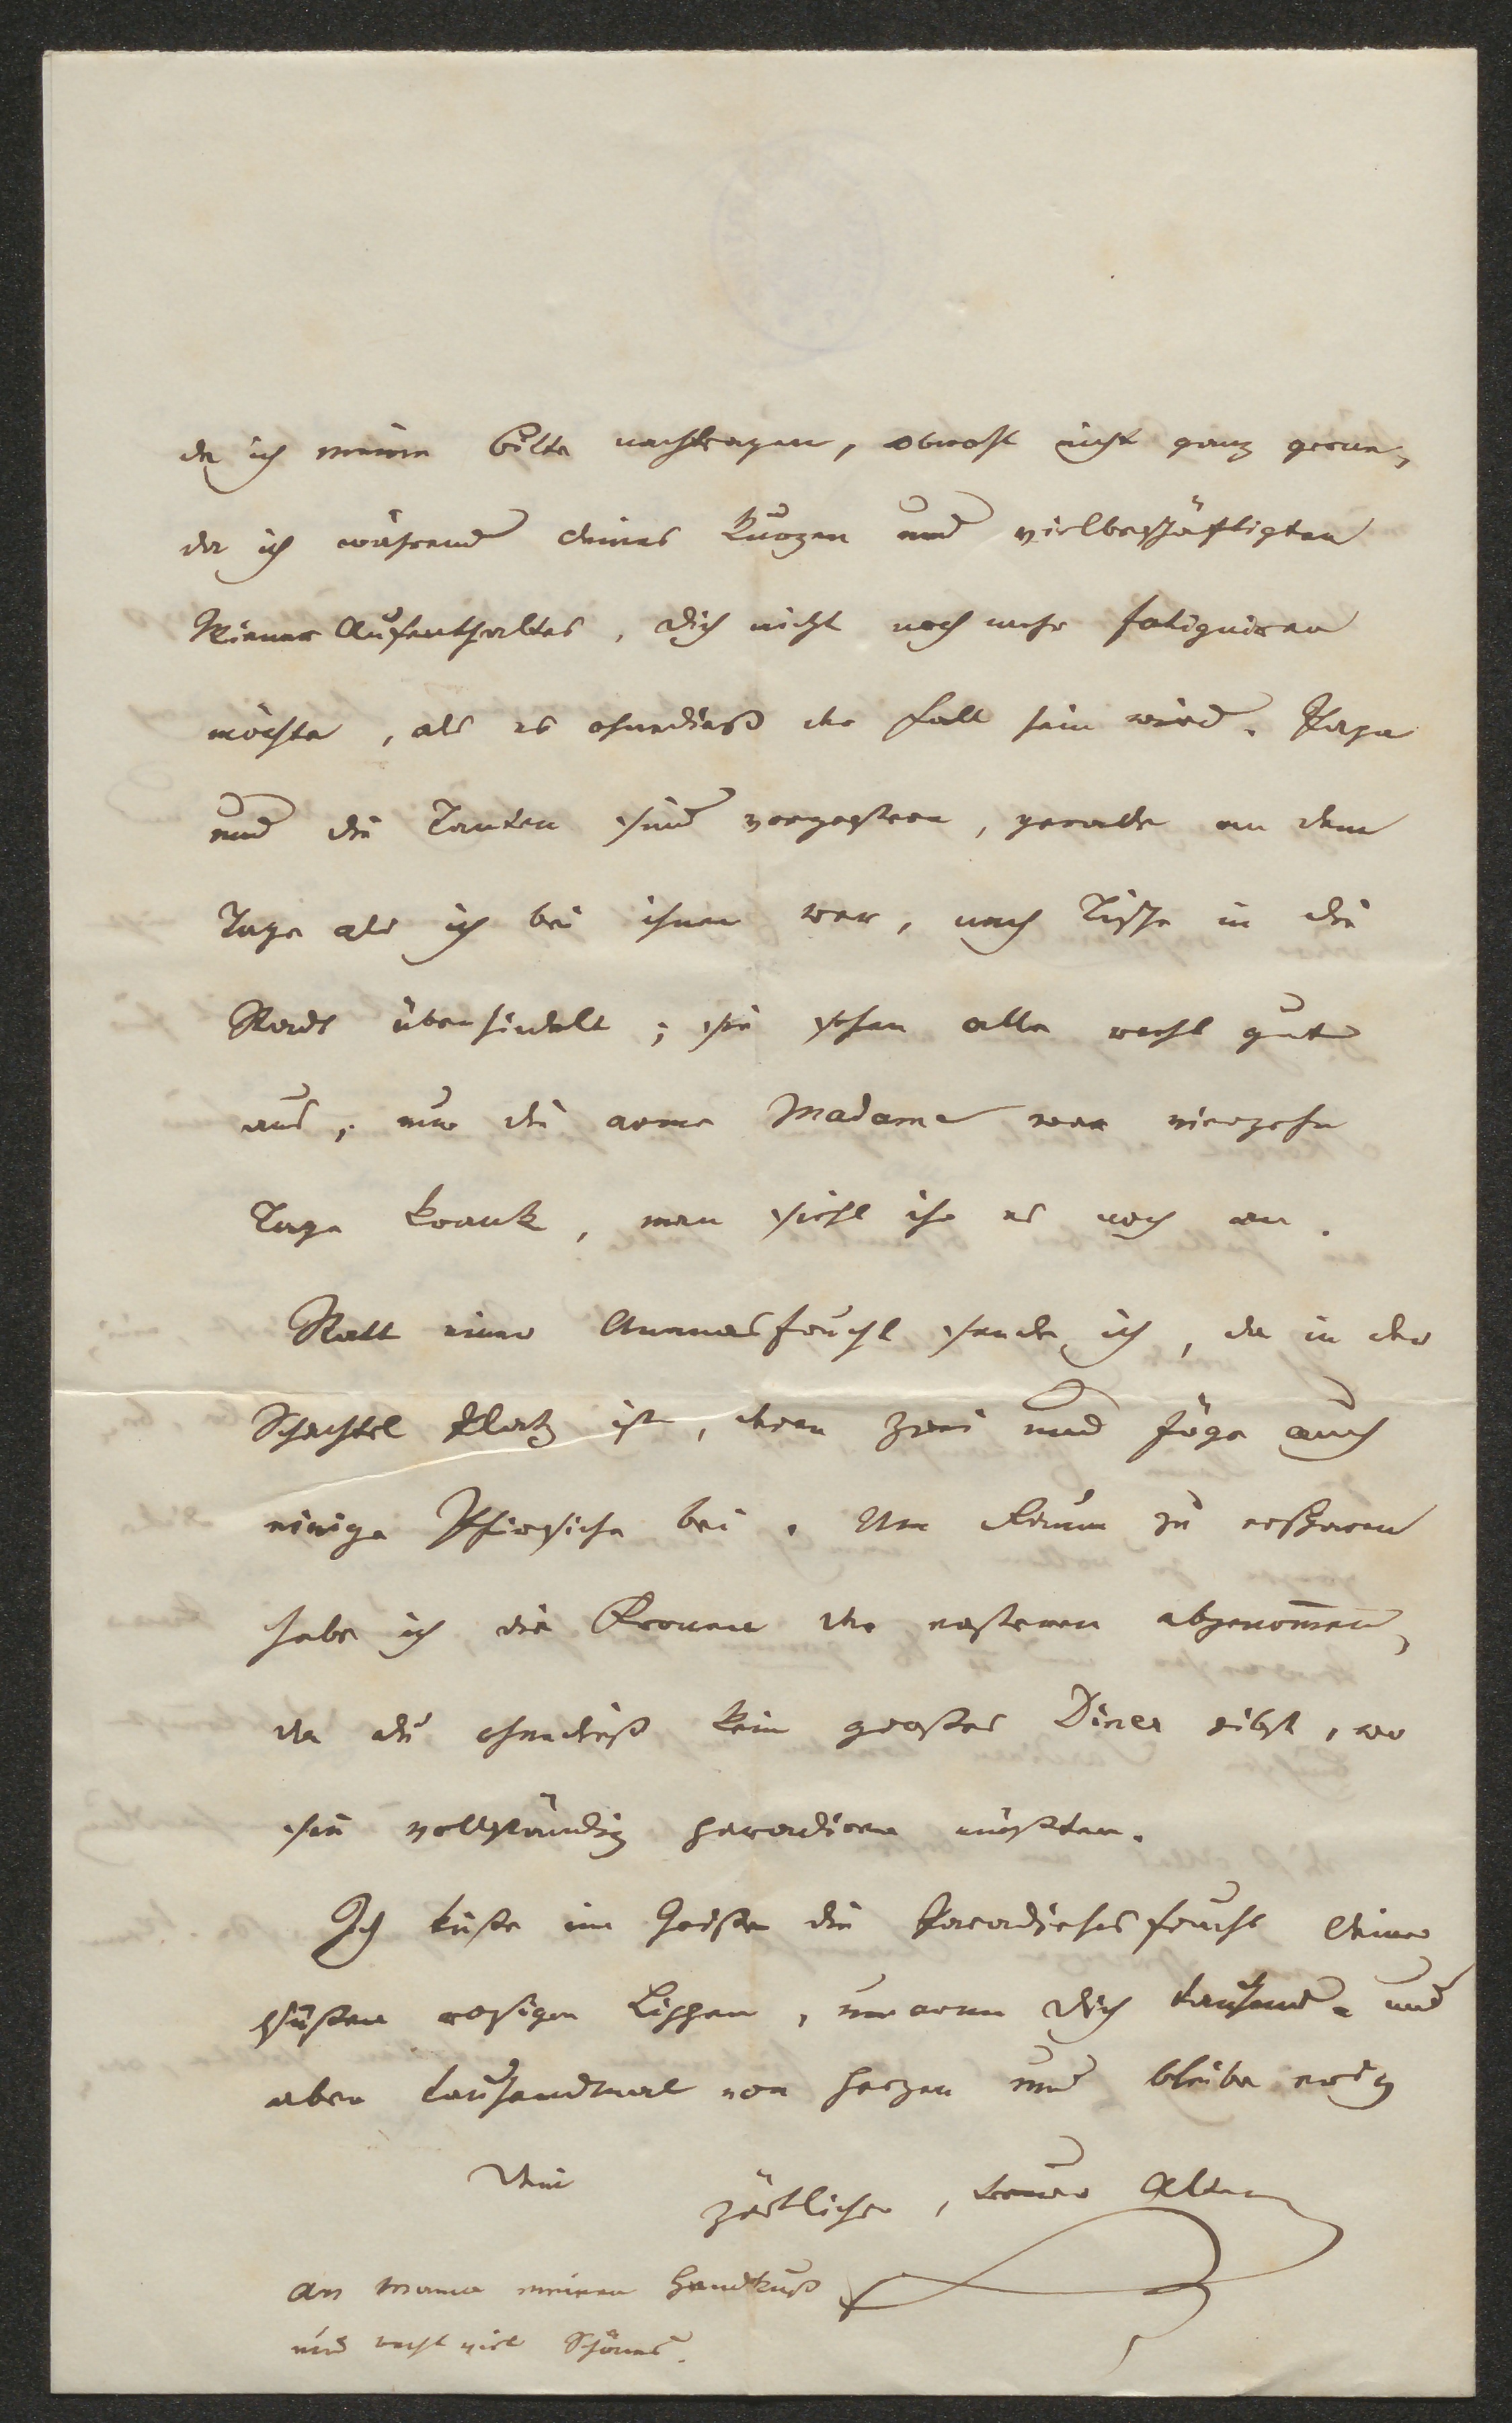 da ich meine Bitte nachtragen, obwohl nicht ganz gerne,
da ich während deines kurzen und vielbeschäftigten
Wiener Aufenthaltes, dich nicht noch mehr fatiguiren
möchte, als es ohnedieß der Fall sein wird. Papa
und die Tanten sind vorgestern, gerade an dem
Tage als ich bei ihnen war, nach Tische in die
Stadt übersiedelt; sie sehen alle recht gut
aus, nur die arme Madame war vierzehn
Tage krank, man sieht ihr es noch an.
Statt einer Ananasfrucht sende ich, da in der
Schachtel Platz ist, deren zwei und füge auch
einige Pfirsiche bei. Um Raum zu ersparen
habe ich die Kronen der ersteren abgenom̅en,
da du ohnedieß kein großes Diner gibst, wo
sie vollständig paradiren müßten.
Ich küße im Geiste die Paradiesesfrucht deiner
süßen rosigen Lippen, umarme dich tausend- und
aber tausendmal von Herzen und bleibe ewig
Dein
zärtlicher, treuer Alter
An Mama meinen Handkuß
und recht viel Schönes.